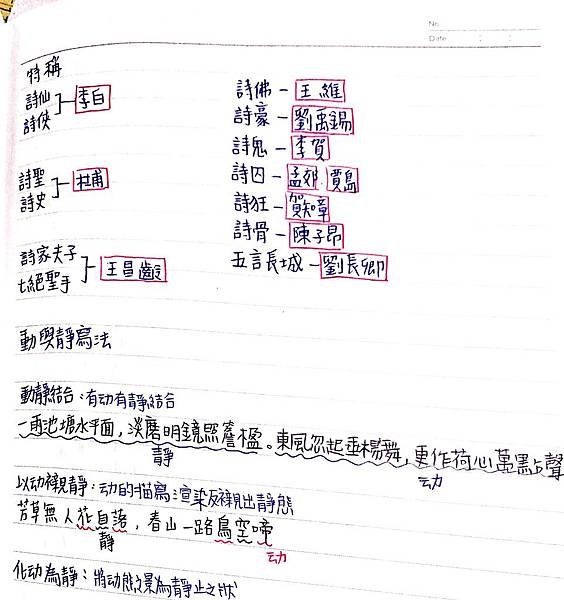 No.
Date
特稱
詩仙
詩俠
李白
詩聖
詩史
杜甫
詩家夫子
七絕聖手
王昌齡
詩佛－王維
詩豪－劉禹錫
詩鬼－李賀
詩囚－孟郊 賈島
詩狂－賀知章
詩骨－陳子昂
五言長城－劉長卿
動與靜寫法
動靜結合：有动有靜結合
一雨池塘水平面，淡磨明鏡照簷楹。東風忽起垂楊舞，更作荷心萬點聲
靜
动
以动襯靜：动的描寫渲染反襯出靜態
芳草無人花自落，春山一路鳥空啼
靜
动
化动為靜：將动態之景為靜止之狀